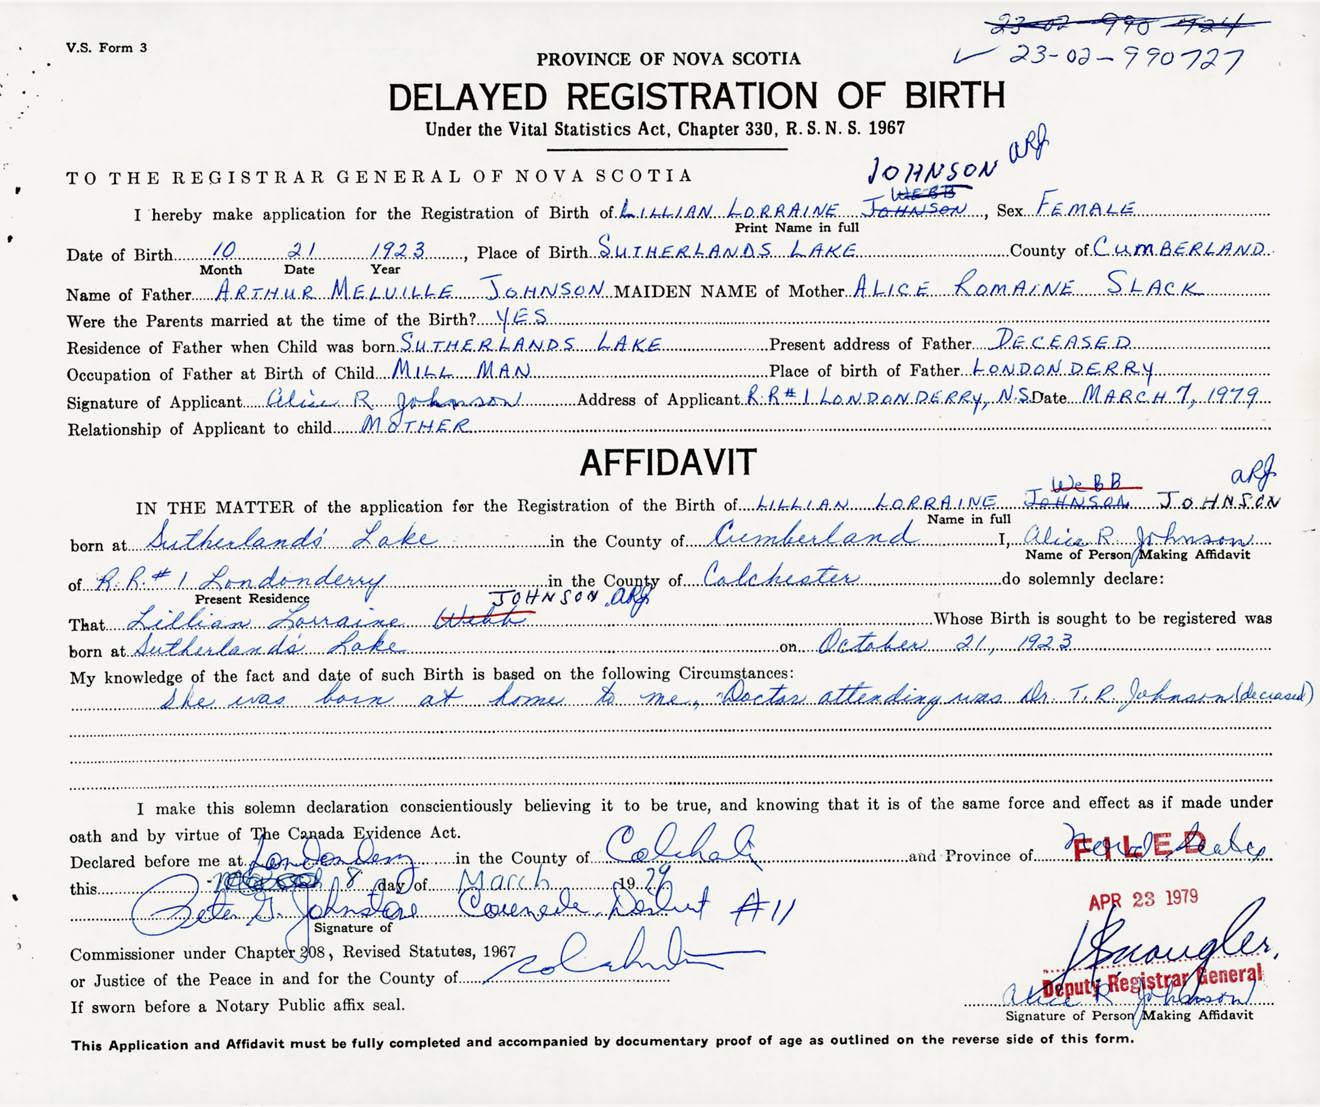 23-02-990 724
V.S. Form 3
✓ 23-02-990727
PROVINCE OF NOVA SCOTIA
DELAYED REGISTRATION OF BIRTH
Under the Vital Statistics Act, Chapter 330, R. S. N. S. 1967
JOHNSON ARJ
TO THE REGISTRAR GENERAL OF NOVA SCOTIA
WEBB
I hereby make application for the Registration of Birth of LILLIAN LORRAINE JOHNSON, Sex FEMALE
Print Name in full
Date of Birth 10 21 1923, Place of Birth SUTHERLANDS LAKE County of CUMBERLAND
Month Date Year
Name of Father ARTHUR MELVILLE JOHNSON MAIDEN NAME of Mother ALICE ROMAINE SLACK
Were the Parents married at the time of the Birth? YES
Residence of Father when Child was born SUTHERLANDS LAKE Present address of Father DECEASED
Occupation of Father at Birth of Child MILL MAN Place of birth of Father LONDONDERRY
Signature of Applicant Alice R Johnson Address of Applicant R.R#1 LONDONDERRY, N.S. Date MARCH 7, 1979
Relationship of Applicant to child MOTHER
AFFIDAVIT
WEBB ARJ
IN THE MATTER of the application for the Registration of the Birth of LILLIAN LORRAINE JOHNSON JOHNSON
Name in full
born at Sutherland's Lake in the County of Cumberland I, Alice R. Johnson
Name of Person Making Affidavit
of R.R.#1 Londonderry in the County of Colchester do solemnly declare:
Present Residence JOHNSON ARJ
That Lillian Lorraine Webb Whose Birth is sought to be registered was
born at Sutherland's Lake on October 21, 1923
My knowledge of the fact and date of such Birth is based on the following Circumstances:
She was born at home to me, Doctor attending was Dr. T.R. Johnson (deceased)
I make this solemn declaration conscientiously believing it to be true, and knowing that it is of the same force and effect as if made under
oath and by virtue of The Canada Evidence Act.
Declared before me at Londonderry in the County of and Province of
FILED
this 8 day of March 1979
APR 23 1979
Peter G. Johnstone District #11
Signature of
Commissioner under Chapter 208, Revised Statutes, 1967
or Justice of the Peace in and for the County of
Deputy Registrar General
Alice R Johnson
If sworn before a Notary Public affix seal.
Signature of Person Making Affidavit
This Application and Affidavit must be fully completed and accompanied by documentary proof of age as outlined on the reverse side of this form.